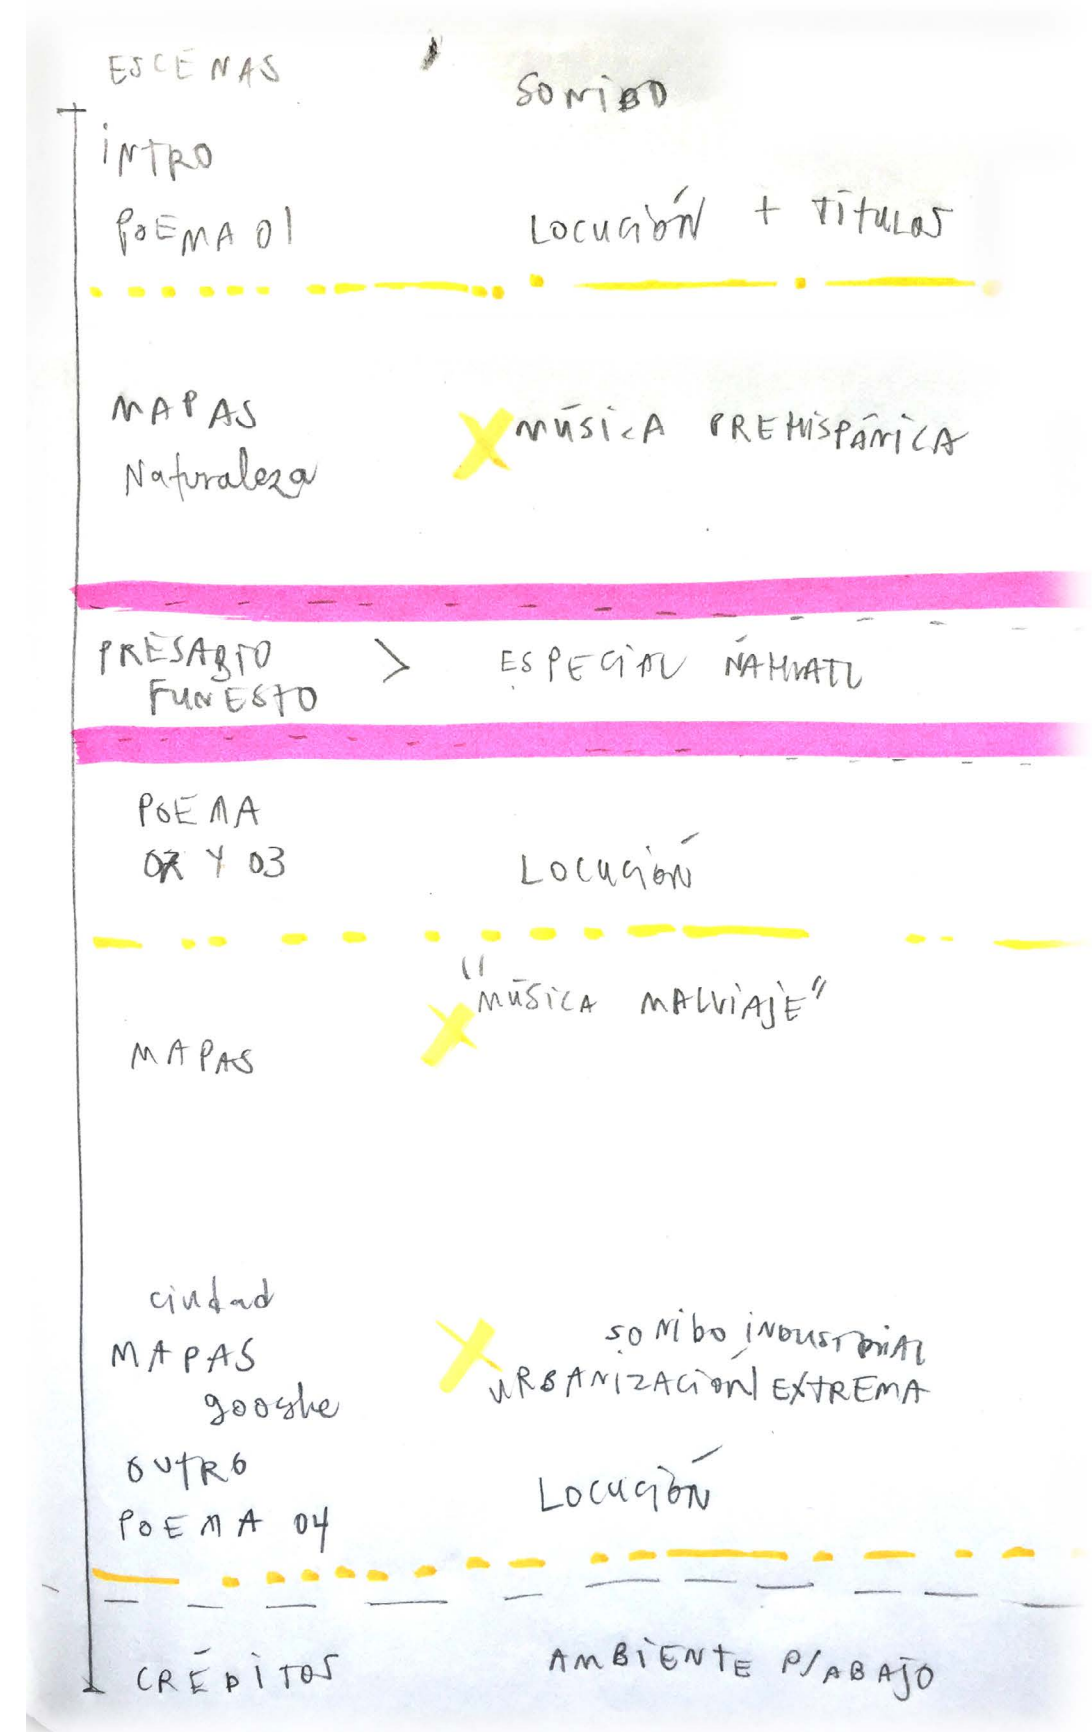 ESCENAS
SONIDO
INTRO
POEMA 01
LOCUCIÓN + TÍTULOS
MAPAS
Naturaleza
MÚSICA PREHISPÁNICA
PRESAGIO
FUNESTO
>
ESPECIAL NAHUATL
POEMA
02 Y 03
LOCUCIÓN
"MÚSICA MALVIAJE"
MAPAS
ciudad
MAPAS
google
SONIDO INDUSTRIAL
URBANIZACIÓN EXTREMA
OUTRO
POEMA 04
LOCUCIÓN
CRÉDITOS
AMBIENTE P/ABAJO